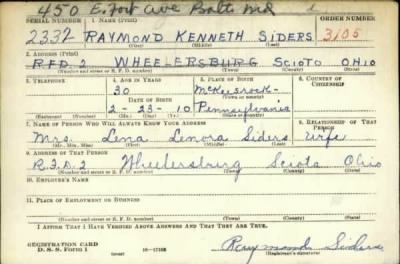 450 E. Fort Ave Balto Md
SERIAL NUMBER 1. NAME (Print) ORDER NUMBER
2332 RAYMOND KENNETH SIDERS 3105
(First) (Middle) (Last)
2. ADDRESS (Print)
R.F.D. 2 WHEELERSBURG SCIOTO OHIO
(Number and street or R. F. D. number) (Town) (County) (State)
3. TELEPHONE 4. AGE IN YEARS 5. PLACE OF BIRTH 6. COUNTRY OF CITIZENSHIP
30
DATE OF BIRTH
2-23-10 Pennsylvania
(Exchange) (Number) (Mo.) (Day) (Yr.) (State or country)
7. NAME OF PERSON WHO WILL ALWAYS KNOW YOUR ADDRESS 8. RELATIONSHIP OF THAT PERSON
Mrs. Lena Lenora Siders Wife
(Mr., Mrs., Miss) (First) (Middle) (Last)
9. ADDRESS OF THAT PERSON
R.F.D. 2 Wheelersburg Scioto Ohio
(Number and street or R. F. D. number) (Town) (County) (State)
10. EMPLOYER'S NAME
11. PLACE OF EMPLOYMENT OR BUSINESS
(Number and street or R. F. D. number) (Town) (County) (State)
I AFFIRM THAT I HAVE VERIFIED ABOVE ANSWERS AND THAT THEY ARE TRUE.
REGISTRATION CARD
D. S. S. Form 1 (over) 16-17105 Raymond Siders
(Registrant's signature)